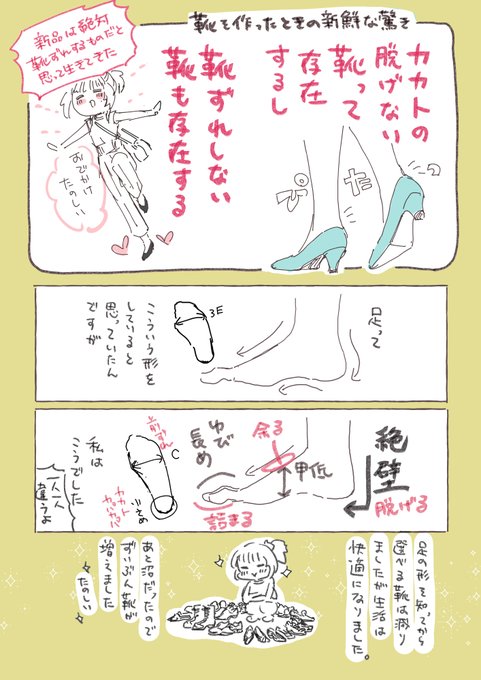 靴を作ったときの新鮮な驚き
カカトの
脱げない
靴って
存在
するし
靴ずれしない
靴も存在する
新品は絶対
靴ずれするものだと
思って生きてきた
おでかけ
たのしい
ぴ
た
足って
3E
こういう形を
していると
思っていたん
ですが
絶壁
脱げる
甲低
余る
ゆび
長め
詰まる
C
小さめ
カカト
カパカパ
私は
こうでした
一人一人
違うよ
足の形を知ってから
選べる靴は減り
ましたが生活は
快適になりました。
あと沼だったので
ずいぶん靴が
増えました
たのしい